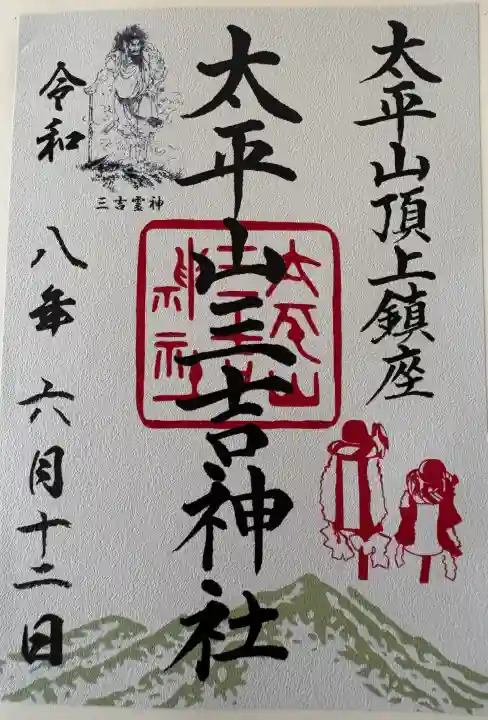 太平山頂上鎮座
太平山三吉神社
太平山
三吉
神社
三吉霊神
令和八年六月十二日